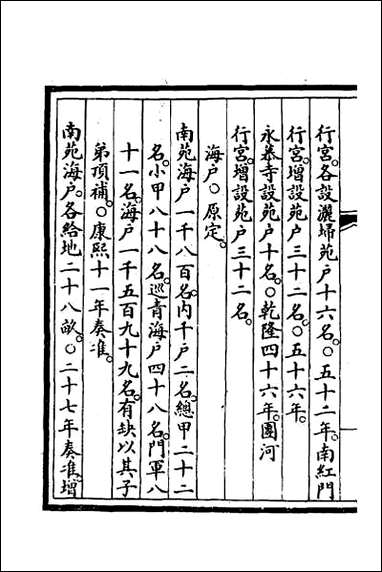 行宮。各設灑埽苑户十六名。○五十二年。南紅門
行宮。增設苑户三十二名。○五十六年。
永慕寺設苑户十名。○乾隆四十六年。團河
行宮。增設苑户三十二名。
海户。○原定。
南苑海户一千八百名。内千户二名。總甲二十二
名。小甲八十八名。巡青海户四十八名。門軍八
十一名。海户一千五百九十九名。有缺以其子
弟頂補。○康熙十一年奏准。
南苑海户。各給地二十八畝。○二十七年奏准。增